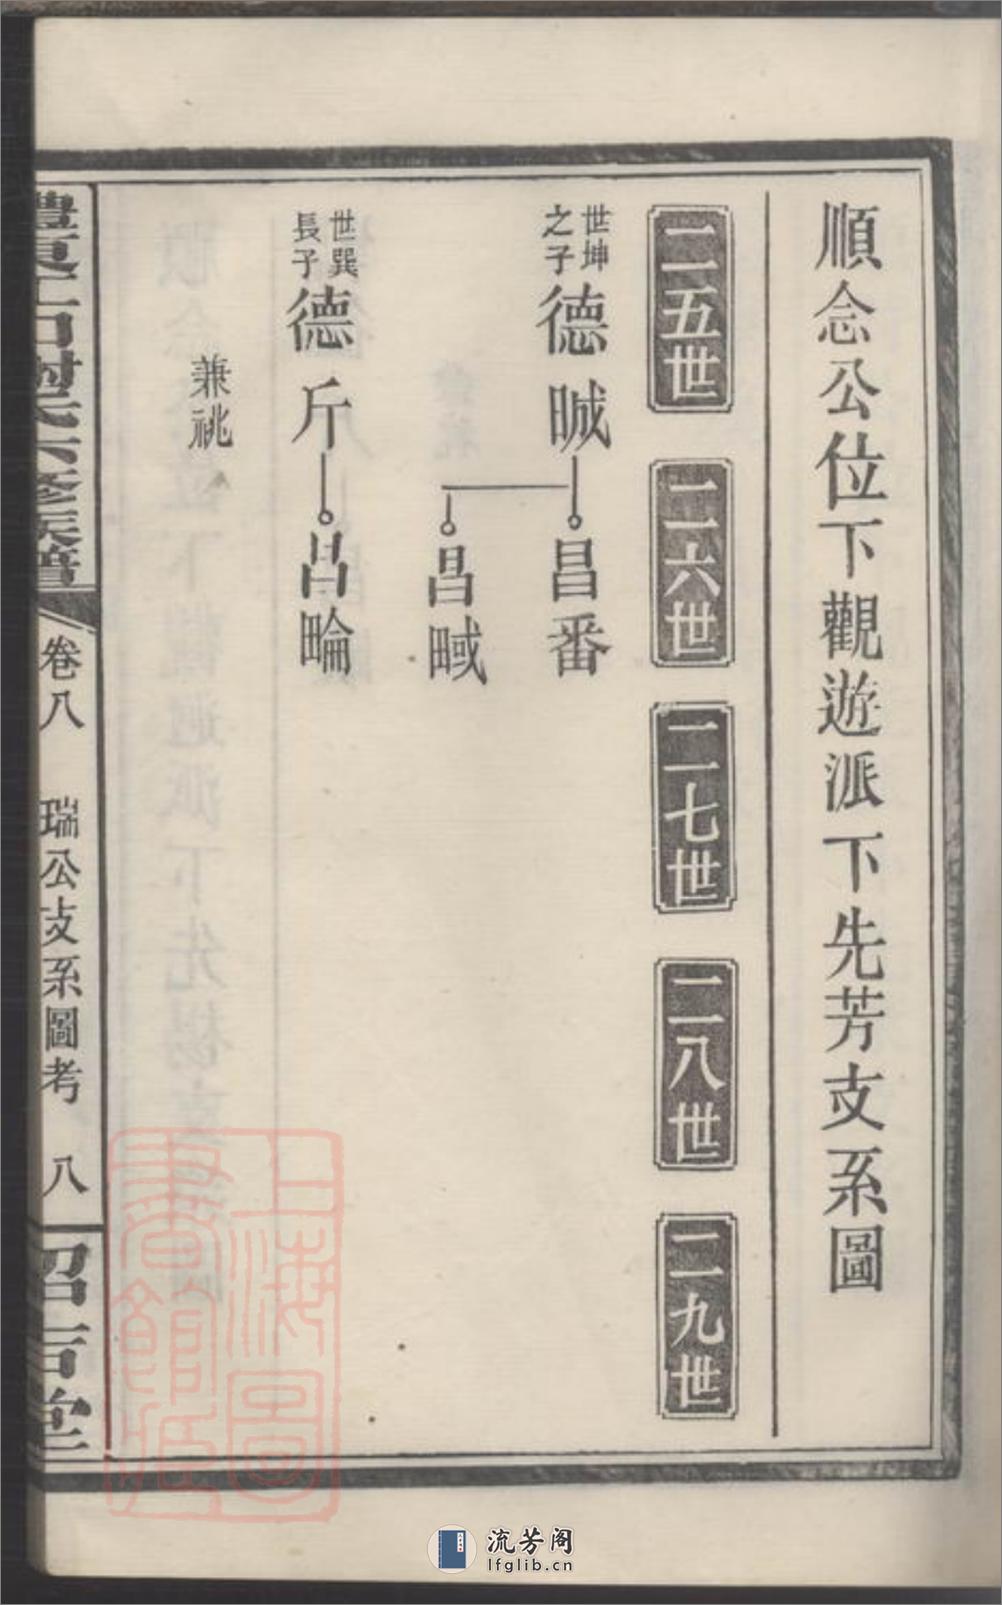 順念公位下觀遊派下先芳支系圖
二五世
二六世
二七世
二八世
二九世
世坤之子
德
昌番
昌域
世巽長子
德斤
昌畮
兼祧
六修族譜
卷八
瑞公支系圖考
八
上海圖書館藏
流芳阁
lfglib.cn